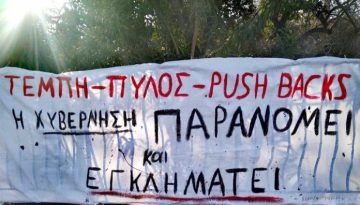 ΤΕΜΠΗ-ΠΥΛΟΣ-PUSH BACKS
Η ΚΥΒΕΡΝΗΣΗ ΠΑΡΑΝΟΜΕΙ
και
ΕΓΚΛΗΜΑΤΕΙ